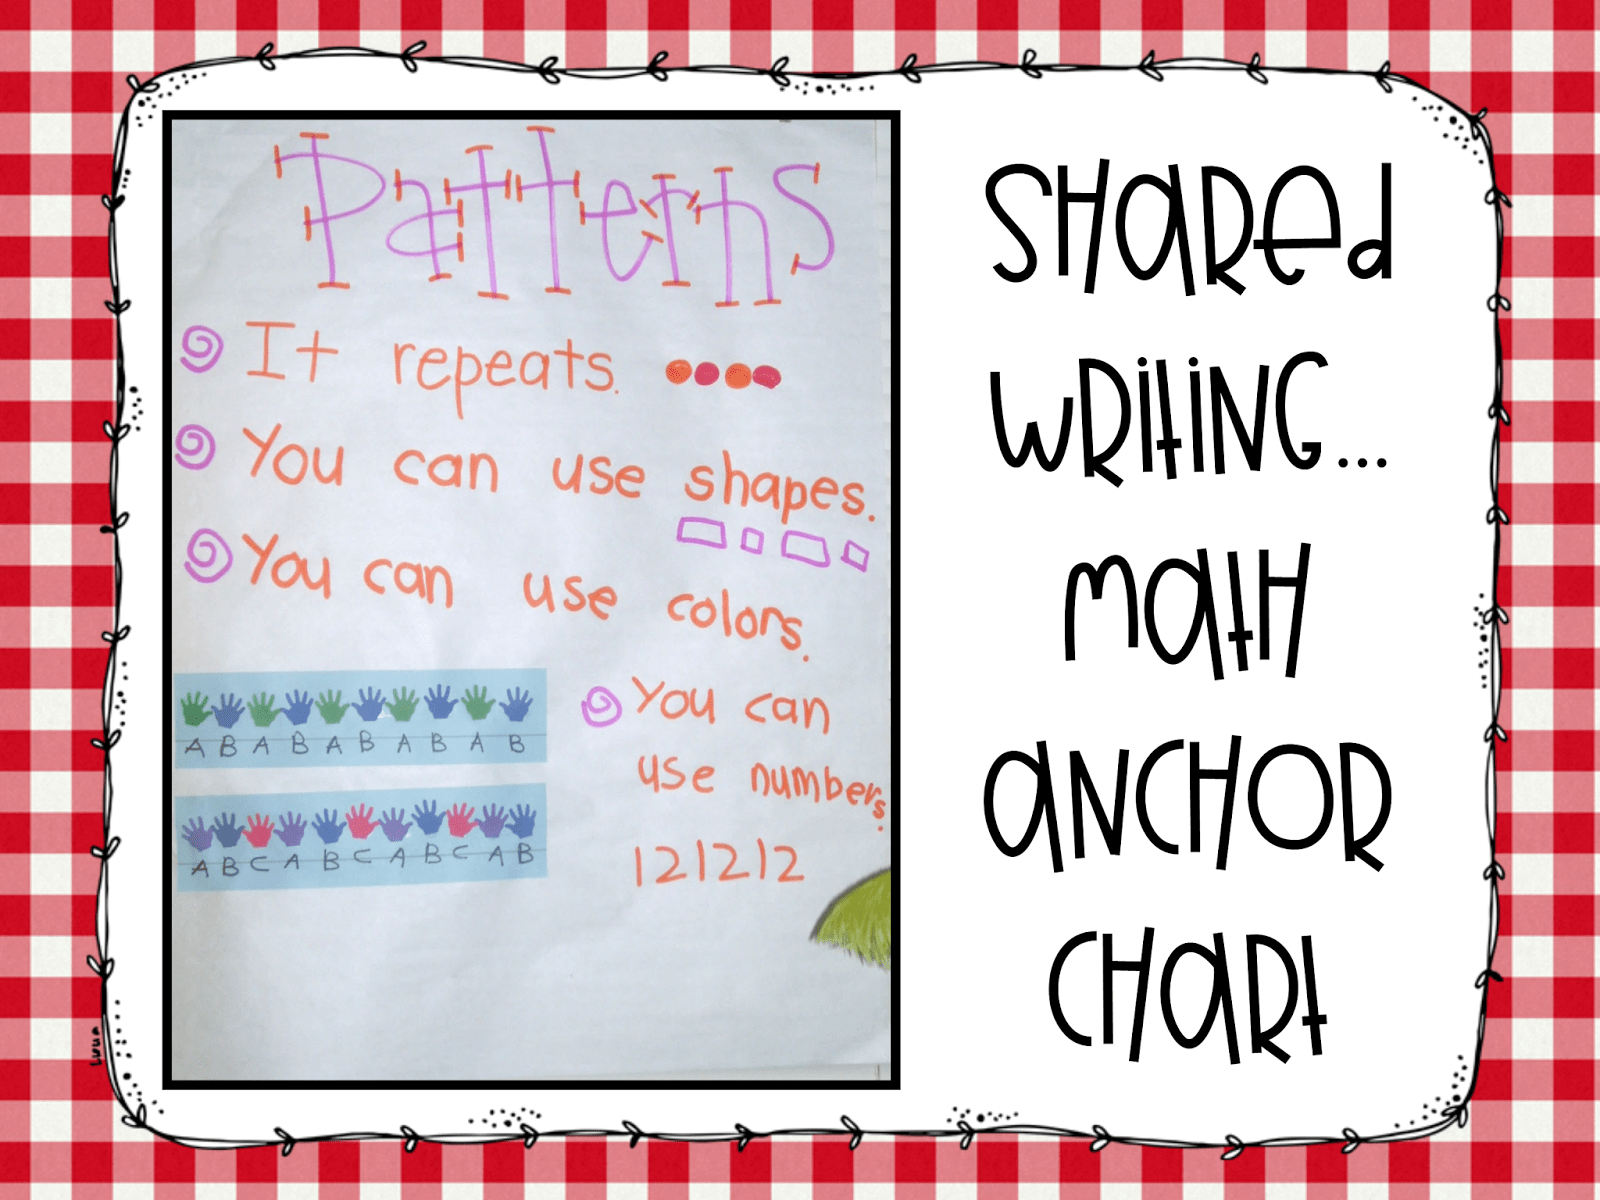 Patterns
It repeats.
You can use shapes.
You can use colors.
A B A B A B A B A B
A B C A B C A B C A B
You can
use numbers.
121212
SHARED
WRITING...
MATH
ANCHOR
CHART